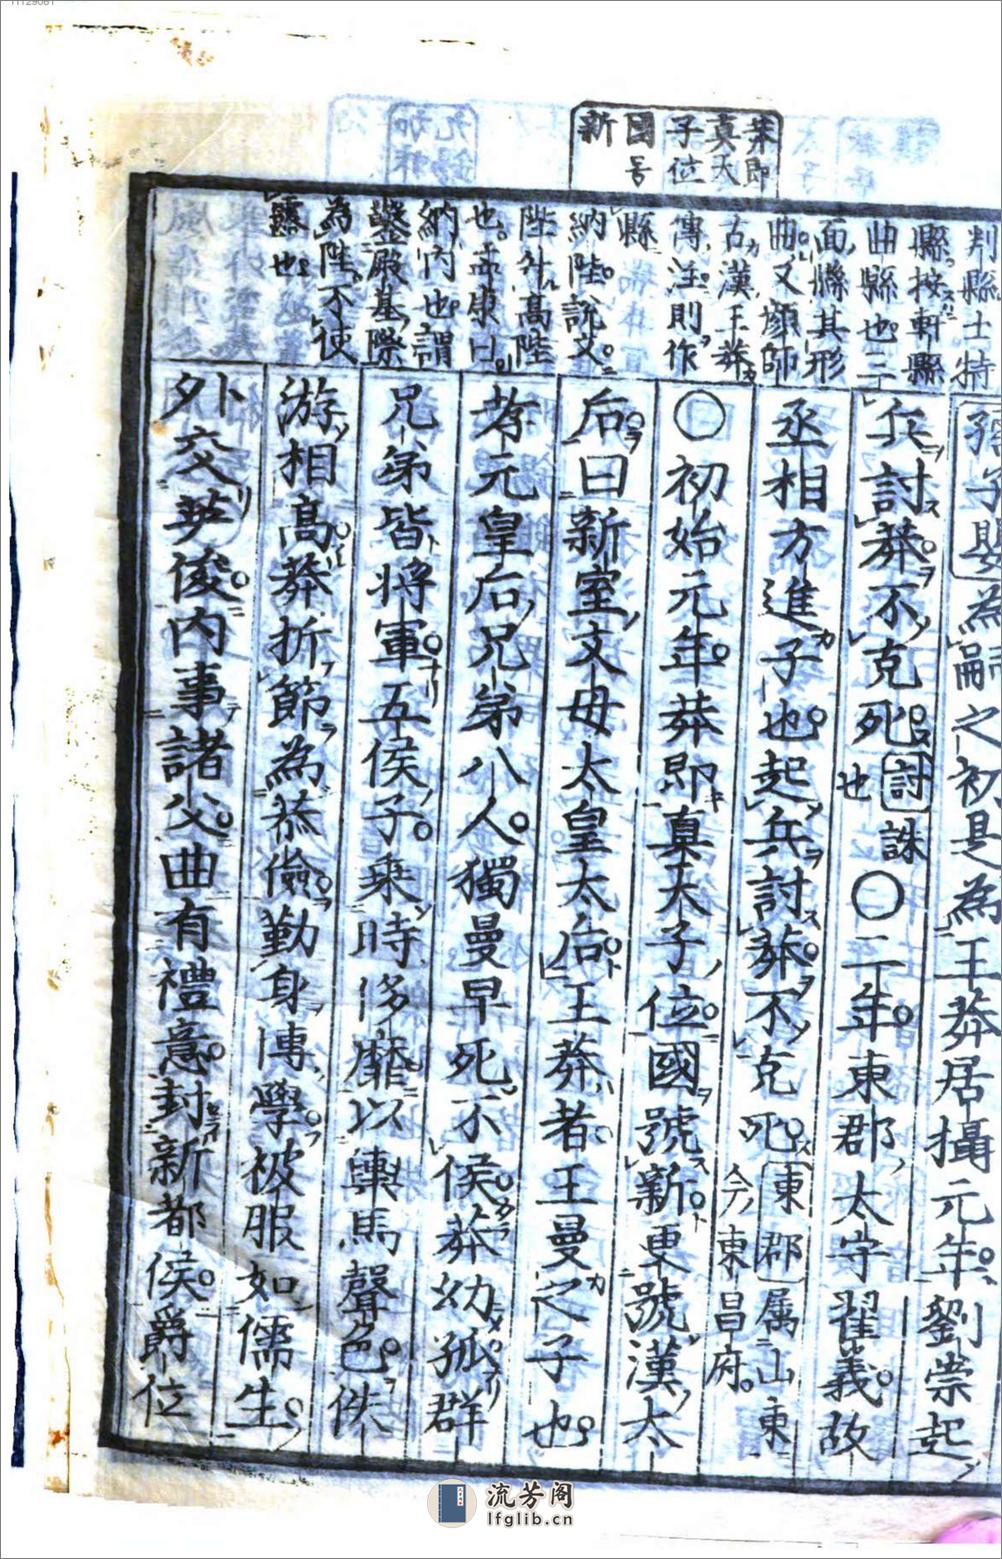 11129081
莽即
真天
子位
國号
新
判縣士特
縣按軒縣
曲縣也三
面縣其形
曲又顔師
古漢王莽
傳注則作
縣
納陛說文
陛升高陛
也孟康曰
納內也謂
鑿殿基際
為陛不使
露也
孺子嬰為嗣之初是為王莽居攝元年劉崇起
兵討莽不克死討誅也〇二年東郡太守翟義故
丞相方進子也起兵討莽不克死東郡属山東今東昌府
〇初始元年莽即真天子位國號新更號漢太
后曰新室文母太皇太后王莽者王曼之子也
孝元皇后兄弟八人獨曼早死不侯莽幼孤群
兄弟皆將軍五侯子乗時侈靡以輿馬聲色佚
游相高莽折節為恭儉勤身博學被服如儒生
外交英俊內事諸父曲有禮意封新都侯爵位
流芳阁
lfglib.cn